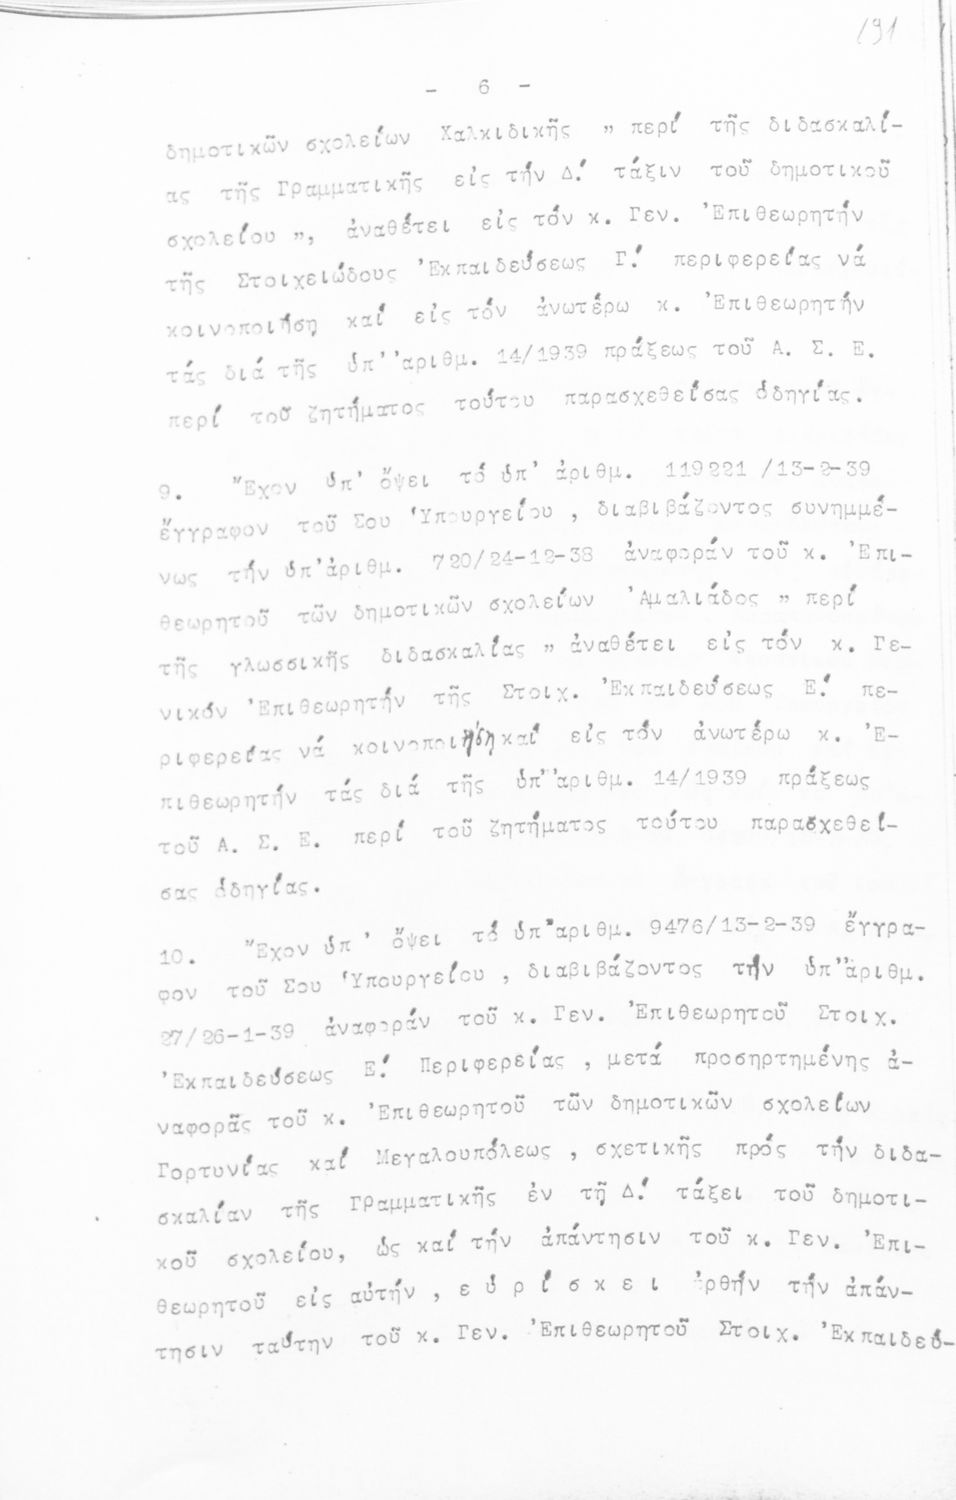 191
- 6 -
δημοτικῶν σχολείων Χαλκιδικῆς " περί τῆς διδασκαλί-
ας τῆς Γραμματικῆς εἰς τήν Δ.' τάξιν τοῦ δημοτικοῦ
σχολείου ", ἀναθέτει εἰς τόν κ. Γεν. Ἐπιθεωρητήν
τῆς Στοιχειώδους Ἐκπαιδεύσεως Γ.' περιφερείας νά
κοινοποιήσῃ καί εἰς τόν ἀνωτέρω κ. Ἐπιθεωρητήν
τάς διά τῆς ὑπ' ἀριθμ. 14/1939 πράξεως τοῦ Α. Σ. Ε.
περί τοῦ ζητήματος τούτου παρασχεθείσας ὁδηγίας.
9. Ἔχον ὑπ' ὄψει τό ὑπ' ἀριθμ. 119221 /13-2-39
ἔγγραφον τοῦ Σου Ὑπουργείου , διαβιβάζοντος συνημμέ-
νως τήν ὑπ'ἀριθμ. 720/24-12-38 ἀναφοράν τοῦ κ. Ἐπι-
θεωρητοῦ τῶν δημοτικῶν σχολείων Ἀμαλιάδος " περί
τῆς γλωσσικῆς διδασκαλίας " ἀναθέτει εἰς τόν κ. Γε-
νικόν Ἐπιθεωρητήν τῆς Στοιχ. Ἐκπαιδεύσεως Ε.' πε-
ριφερείας νά κοινοποιήσῃ καί εἰς τόν ἀνωτέρω κ. Ἐ-
πιθεωρητήν τάς διά τῆς ὑπ' ἀριθμ. 14/1939 πράξεως
τοῦ Α. Σ. Ε. περί τοῦ ζητήματος τούτου παρασχεθεί-
σας ὁδηγίας.
10. Ἔχον ὑπ ' ὄψει τό ὑπ'ἀριθμ. 9476/13-2-39 ἔγγρα-
φον τοῦ Σου Ὑπουργείου , διαβιβάζοντος τήν ὑπ' ἀριθμ.
27/26-1-39 ἀναφοράν τοῦ κ. Γεν. Ἐπιθεωρητοῦ Στοιχ.
Ἐκπαιδεύσεως Ε.' Περιφερείας , μετά προσηρτημένης ἀ-
ναφορᾶς τοῦ κ. Ἐπιθεωρητοῦ τῶν δημοτικῶν σχολείων
Γορτυνίας καί Μεγαλουπόλεως , σχετικῆς πρός τήν διδα-
σκαλίαν τῆς Γραμματικῆς ἐν τῇ Δ.' τάξει τοῦ δημοτι-
κοῦ σχολείου, ὡς καί τήν ἀπάντησιν τοῦ κ. Γεν. Ἐπι-
θεωρητοῦ εἰς αὐτήν , ε ὑ ρ ί σ κ ε ι ὀρθήν τήν ἀπάν-
τησιν ταύτην τοῦ κ. Γεν. Ἐπιθεωρητοῦ Στοιχ. Ἐκπαιδεύ-